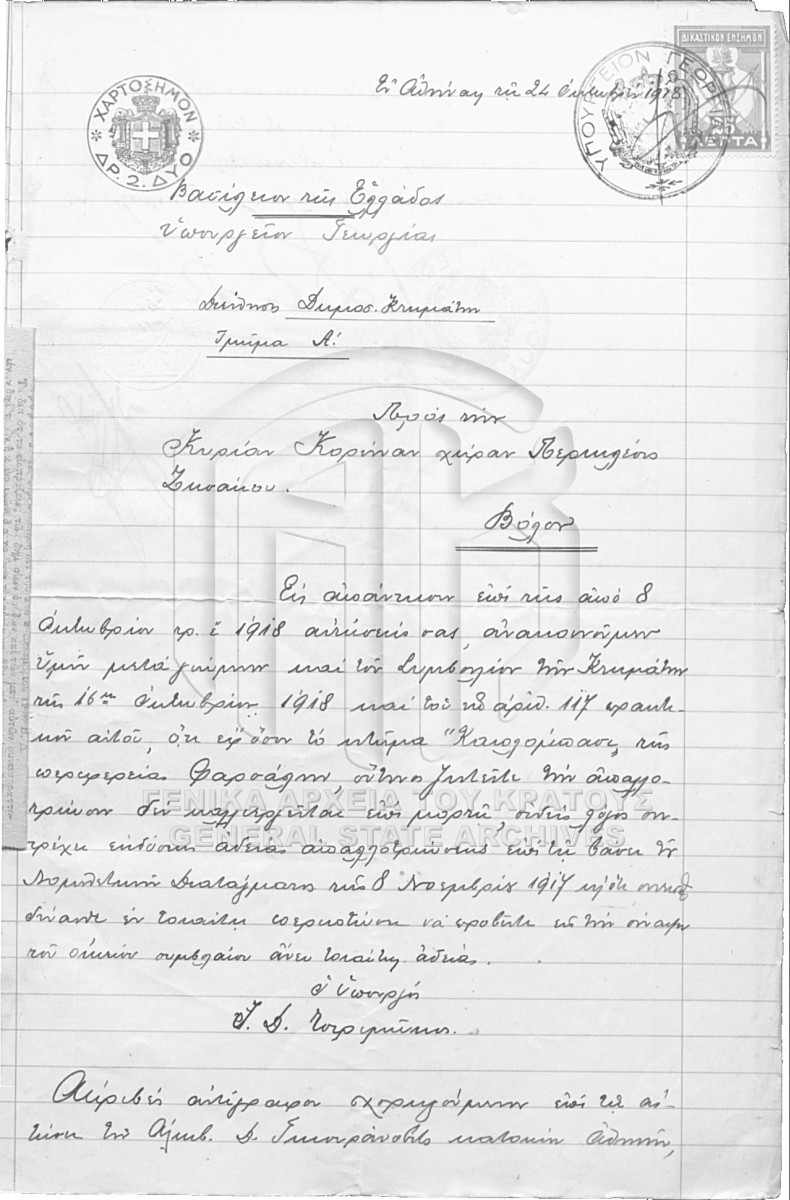 Ἐν Ἀθήναις τῇ 24 Ὀκτωβρίου 1918
ΧΑΡΤΟΣΗΜΟΝ
ΔΡ. 2. ΔΥΟ
ΥΠΟΥΡΓΕΙΟΝ ΓΕΩΡΓΙΑΣ
ΔΙΚΑΣΤΙΚΟΝ ΕΝΣΗΜΟΝ
ΛΕΠΤΑ
Βασίλειον τῆς Ἑλλάδος
Ὑπουργεῖον Γεωργίας
Διεύθησις Δημοσ. Κτημάτων
Τμῆμα Α!
Πρὸς τὴν
Κυρίαν Κορίναν χήραν Περικλέους
Ζησάκου.
Βόλον
Εἰς ἀπάντησιν ἐπὶ τῆς ἀπὸ 8
Ὀκτωβρίου τρ. ἔ. 1918 αἰτήσεώς σας, ἀνακοινοῦμεν
ὑμῖν μετὰ γνώμην καὶ τοῦ Συμβουλίου τῶν Κτημάτων
τῆς 16ης Ὀκτωβρίου 1918 καὶ τοῦ ὑπ' ἀριθ. 117 πρακτι-
κοῦ αὐτοῦ, ὅτι ἐφ' ὅσον τὸ κτῆμα "Καπλομπασι" τῆς
περιφερείας Φαρσάλων, οὗτινος ζητεῖτε τὴν ἀπαλλο-
τρίωσιν δὲν καλλιεργεῖται ἐπὶ μορτῇ, οὐδεὶς λόγος συν-
τρέχει ἐκδόσεως ἀδείας ἀπαλλοτριώσεως ἐπὶ τῇ βάσει τοῦ
Νομοθετικοῦ Διατάγματος τῆς 8 Νοεμβρίου 1917
δύνασθε ἐν τοιαύτῃ περιπτώσει νὰ προβῆτε εἰς τὴν σύναψιν
τοῦ οἰκείου συμβολαίου ἄνευ τοιαύτης ἀδείας.
Ὁ Ὑπουργὸς
Ἰ. Δ. Τσιριμῶκος.
Ἀκριβὲς ἀντίγραφον χορηγούμενον ἐπὶ τῇ αἰ-
τήσει τοῦ Δ. κατοίκου Ἀθηνῶν,
ΓΕΝΙΚΑ ΑΡΧΕΙΑ ΤΟΥ ΚΡΑΤΟΥΣ
GENERAL STATE ARCHIVES